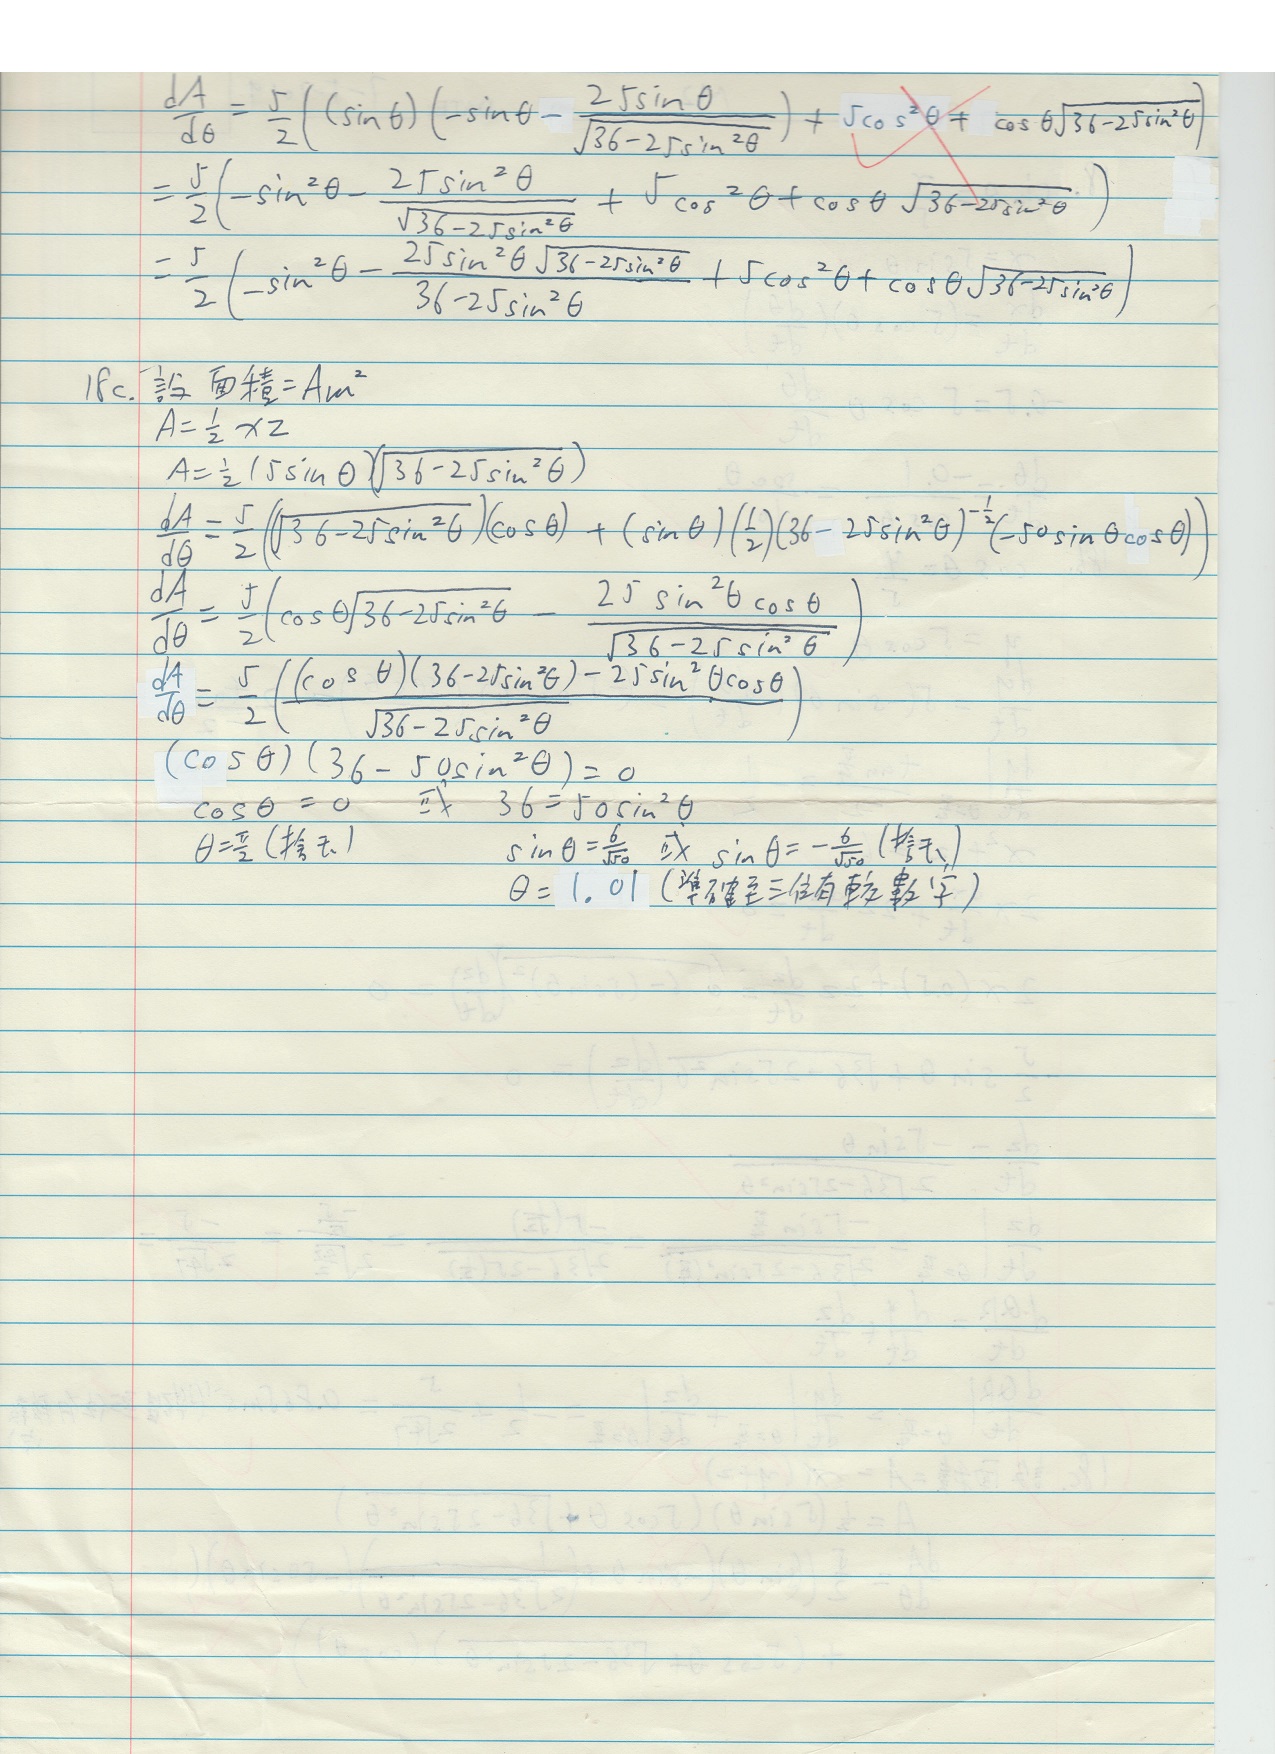 dA/dθ = 5/2 ((sin θ)(-sin θ - 25sin θ/√(36-25sin²θ)) + 5cos²θ + cos θ√(36-25sin²θ))
= 5/2 (-sin²θ - 25sin²θ/√(36-25sin²θ) + 5cos²θ + cos θ √(36-25sin²θ))
= 5/2 (-sin²θ - 25sin²θ√(36-25sin²θ)/(36-25sin²θ) + 5cos²θ + cos θ√(36-25sin²θ))
18c. 設面積=Am²
A=½xz
A=½(5sin θ)(√(36-25sin²θ))
dA/dθ = 5/2 ((√(36-25sin²θ))(cos θ) + (sin θ)(½)(36-25sin²θ)^(-½)(-50sin θ cos θ))
dA/dθ = 5/2 (cos θ√(36-25sin²θ) - 25 sin²θ cos θ/√(36-25sin²θ))
dA/dθ = 5/2 (((cos θ)(36-25sin²θ)-25sin²θcosθ)/√(36-25sin²θ))
(cos θ)(36-50sin²θ)=0
cos θ = 0 或 36=50sin²θ
θ=π/2 (捨去) sin θ=6/√50 或 sin θ=-6/√50 (捨去)
θ= 1.01 (準確至三位有效數字)